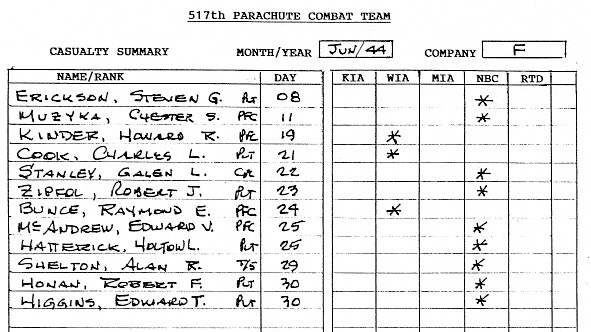 517th PARACHUTE COMBAT TEAM
CASUALTY SUMMARY MONTH/YEAR JUN/44 COMPANY F
NAME/RANK DAY KIA WIA MIA NBC RTD
ERICKSON, STEVEN G. PVT 08 *
MUZYKA, CHESTER S. PFC 11 *
KINDER, HOWARD R. PFC 19 *
COOK, CHARLES L. PVT 21 *
STANLEY, GALEN L. CPL 22 *
ZIPFOL, ROBERT J. PVT 23 *
BUNCE, RAYMOND E. PFC 24 *
McANDREW, EDWARD V. PFC 25 *
HATTERICK, HOLTON L. PVT 25 *
SHELTON, ALAN R. T/5 29 *
HONAN, ROBERT F. PVT 30 *
HIGGINS, EDWARD T. PVT 30 *